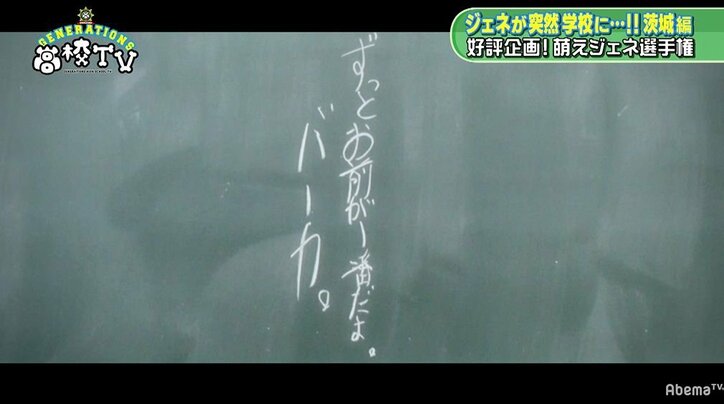 GENERATIONS
高校TV
GENERATIONS HIGH SCHOOL TV
ジェネが突然学校に…!!茨城編
好評企画!萌えジェネ選手権
ずっとお前が一番だよ。
バーカ。
AbemaTV